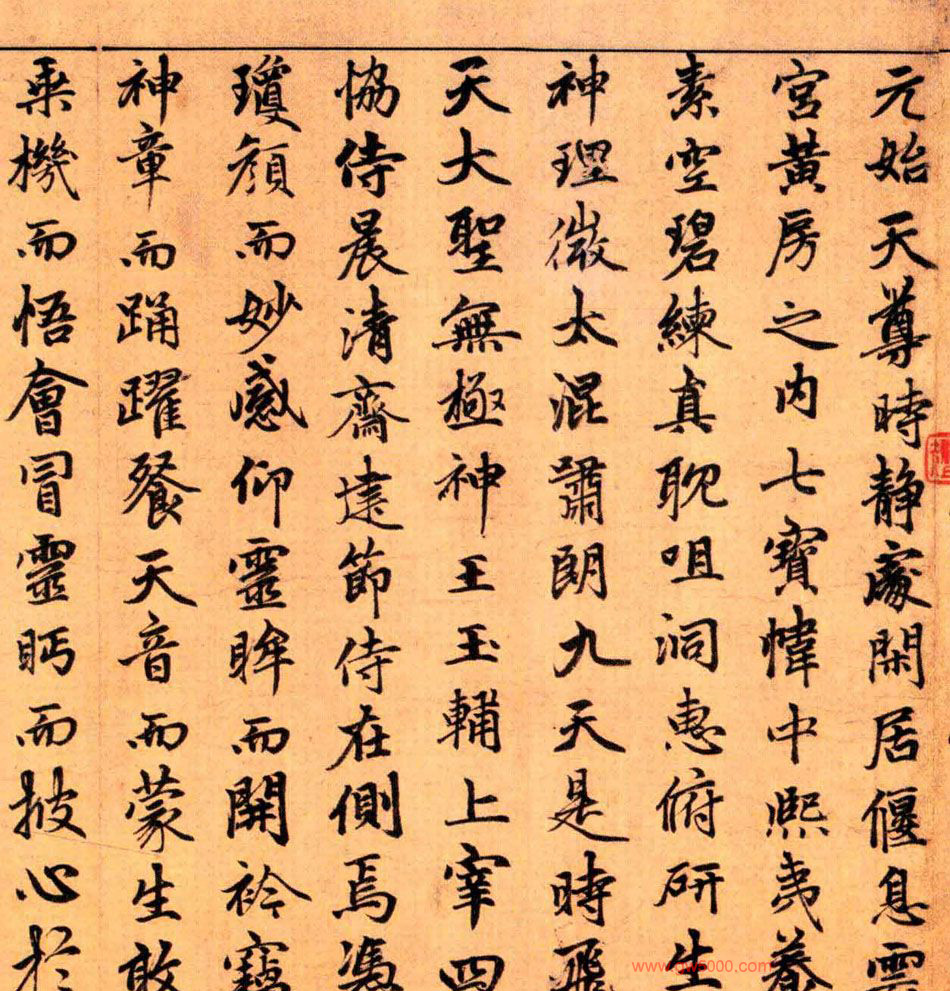 元始天尊時靜處閑居偃息雲
宮黃房之內七寶幃中熙夷養
素空碧練真耽咀洞惠俯研生
神理微太混肅朗九天是時飛
天大聖無極神王玉輔上宰四
協侍晨清齋建節侍在側焉馮
瓊顏而妙感仰靈眸而開衿竊
神章而踊躍餐天音而蒙生敢
乘機而悟會冒靈眄而披心於
www.   000.com